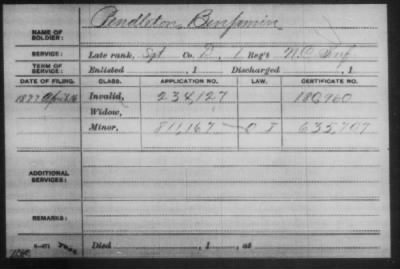 Pendleton, Benjamin
NAME OF SOLDIER:
SERVICE: Late rank, Sgt Co. D, 1 Reg't N.C. Inf
TERM OF SERVICE: Enlisted , 1 Discharged , 1
DATE OF FILING. CLASS. APPLICATION NO. LAW. CERTIFICATE NO.
1877 April 16 Invalid, 234,127 180,960
Widow,
Minor, 811,167 O J 635,707
ADDITIONAL SERVICES:
REMARKS:
Died , 1 , at
6-471